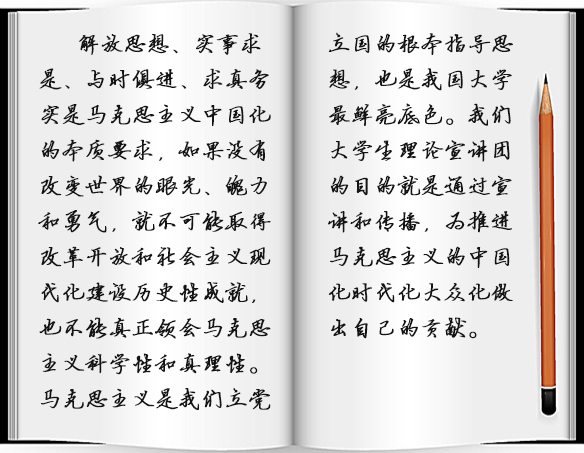 解放思想、实事求
是、与时俱进、求真务
实是马克思主义中国化
的本质要求，如果没有
改变世界的眼光、魄力
和勇气，就不可能取得
改革开放和社会主义现
代化建设历史性成就，
也不能真正领会马克思
主义科学性和真理性。
马克思主义是我们立党
立国的根本指导思
想，也是我国大学
最鲜亮底色。我们
大学生理论宣讲团
的目的就是通过宣
讲和传播，为推进
马克思主义的中国
化时代化大众化做
出自己的贡献。